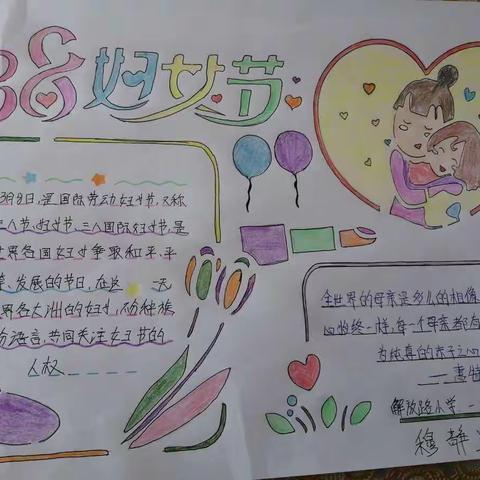 38妇女节
3月8日,是国际劳动妇女节,又称
三八节,妇女节,三八国际妇女节,是
世界各国妇女争取和平、平
等、发展的节日,在这一天
世界各大洲的妇女,不分种族
语言,共同关注妇女节的
人权
全世界的母亲是多么的相像
心始终一样,每一个母亲都有
为纯真的赤子之心
——惠特
解放路小学
穆静